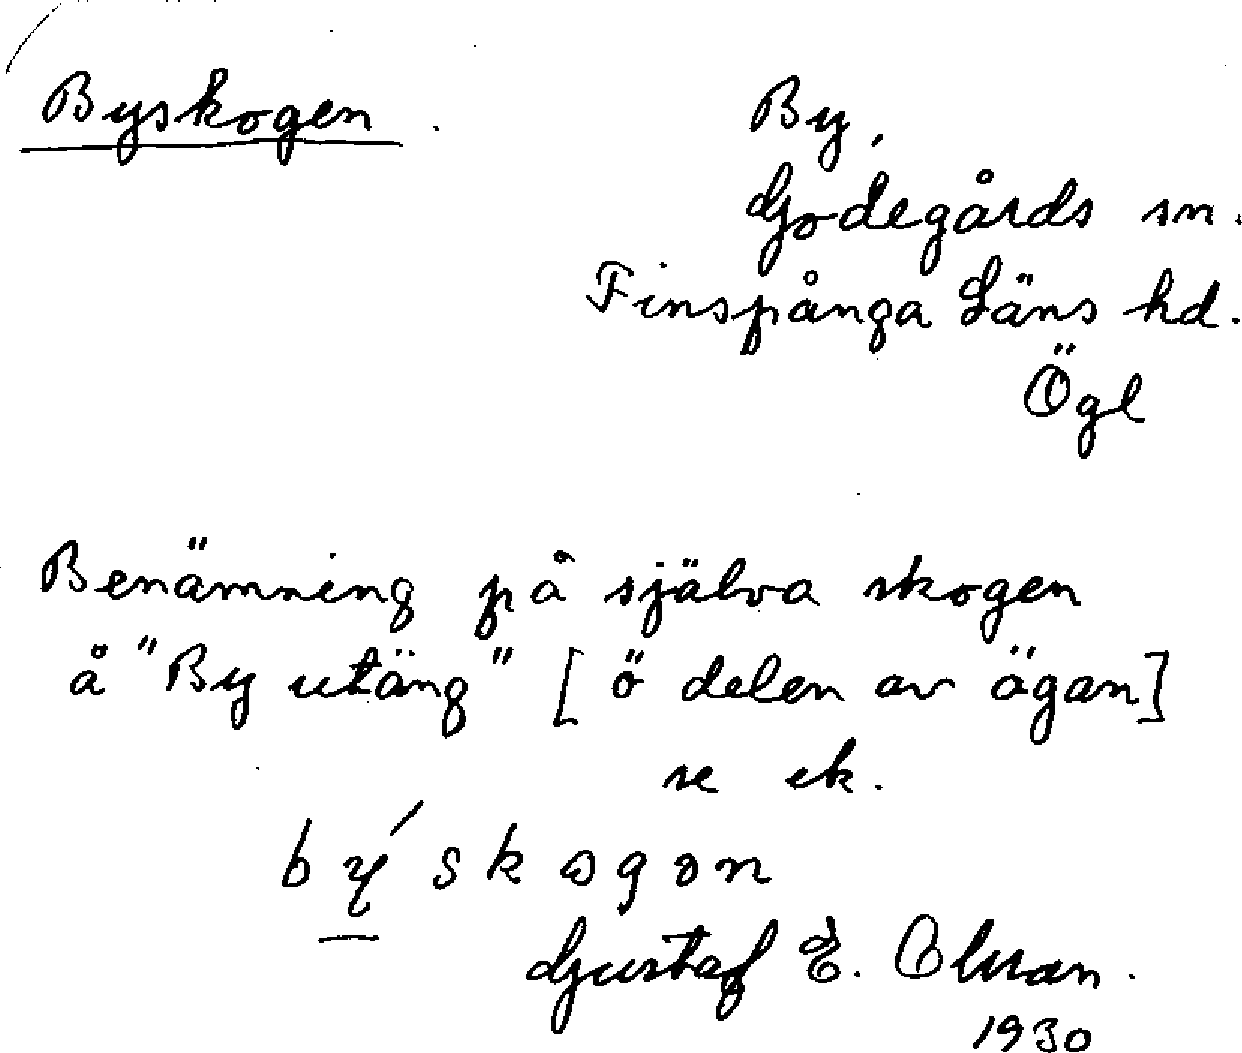 Byskogen
By,
Godegårds sn.
Finspånga Läns hd.
Ögl
Benämning på själva skogen
å "By utäng" [ö delen av ägan]
se ek.
Gustaf E. Olsson.
1930